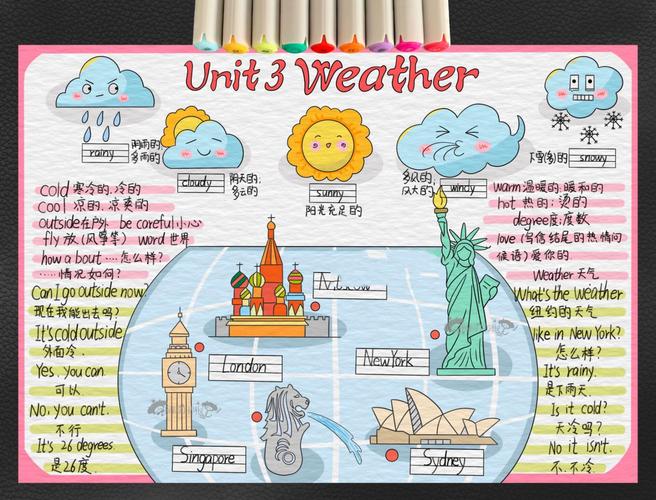 Unit 3 Weather
rainy
阴雨的;
多雨的
cloudy
阴天的;
多云的
sunny
阳光充足的
多风的;
风大的
windy
下雪(多)的
snowy
cold 寒冷的;冷的
cool 凉的;凉爽的
outside 在户外 be careful 小心
fly 放(风筝等) word 世界
how about ····怎么样?
······情况如何?
Can I go outside now?
现在我能出去吗?
It's cold outside
外面冷.
Yes, you can
可以
No, you can't.
不行
It's 26 degrees.
是26度.
London
New York
Singapore
Sydney
warm 温暖的;暖和的
hot 热的;烫的
degree 度;度数
love (写信结尾的热情问
候语) 爱你的
Weather 天气
What's the weather
纽约的天气
like in New York?
怎么样?
It's rainy.
是下雨天.
Is it cold?
天冷吗?
No it isn't.
不.不冷